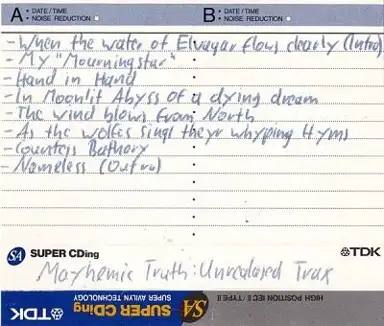 A • DATE/TIME • NOISE REDUCTION B • DATE/TIME • NOISE REDUCTION
- When the water of Elvagar flows clearly (Intro)
- My "Mourningstar"
- Hand in Hand
- In Moonlit Abyss of a dying dream
- The wind blows from North
- As the wolfes sings theyr whyping Hyms
- Countess Bathory
- Nameless (Outro)
SA SUPER CDing TDK
Mayhemic Truth: Unrealased Trax
HIGH POSITION IEC II / TYPE II
SA SUPER CDing
SUPER AVILYN TECHNOLOGY
TDK